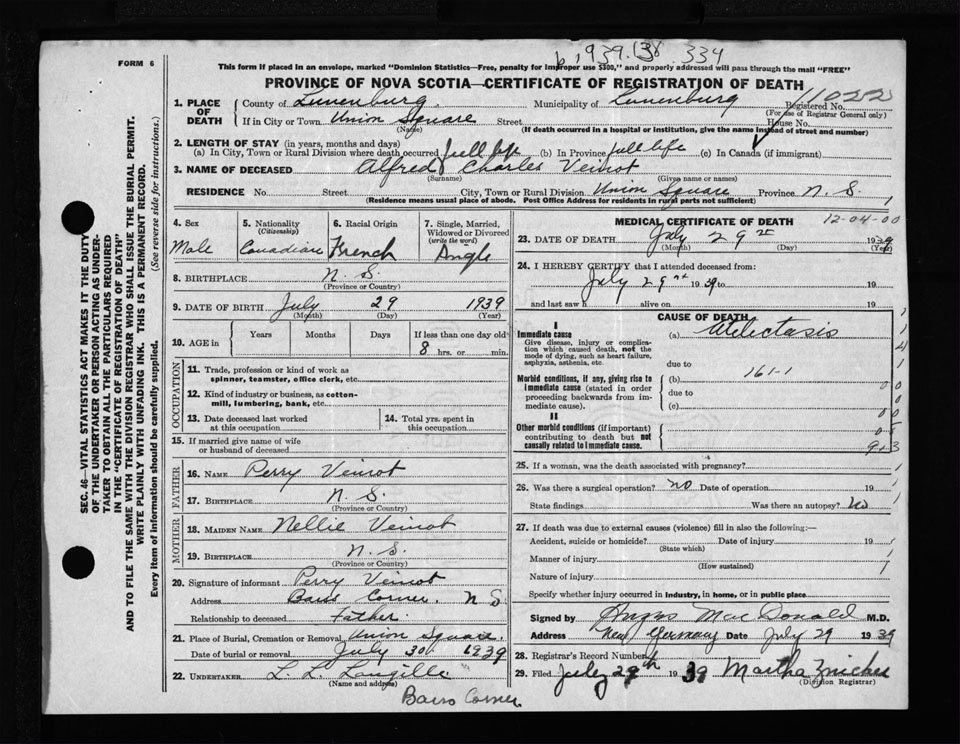 FORM 6
6,939.(38 334
This form if placed in an envelope, marked "Dominion Statistics—Free, penalty for improper use $300," and properly addressed will pass through the mail "FREE"
PROVINCE OF NOVA SCOTIA—CERTIFICATE OF REGISTRATION OF DEATH
11022
1. PLACE OF DEATH County of Lunenburg Municipality of Lunenburg Registered No.
(For use of Registrar General only)
If in City or Town Union Square Street House No.
(Name) (If death occurred in a hospital or institution, give the name instead of street and number)
2. LENGTH OF STAY (in years, months and days)
(a) In City, Town or Rural Division where death occurred full life (b) In Province full life (c) In Canada (if immigrant)
3. NAME OF DECEASED Alfred Charles Veinot
(Surname) (Given name or names)
RESIDENCE No. Street City, Town or Rural Division Union Square Province N. S.
(Residence means usual place of abode. Post Office Address for residents in rural parts not sufficient)
4. Sex Male
5. Nationality (Citizenship) Canadian
6. Racial Origin French
7. Single, Married, Widowed or Divorced (write the word) Single
8. BIRTHPLACE N. S.
(Province or Country)
9. DATE OF BIRTH July 29 1939
(Month) (Day) (Year)
10. AGE in Years Months Days If less than one day old
8 hrs. or min.
OCCUPATION
11. Trade, profession or kind of work as spinner, teamster, office clerk, etc.
12. Kind of industry or business, as cotton-mill, lumbering, bank, etc.
13. Date deceased last worked at this occupation
14. Total yrs. spent in this occupation
15. If married give name of wife or husband of deceased
FATHER
16. NAME Perry Veinot
17. BIRTHPLACE N. S.
(Province or Country)
MOTHER
18. MAIDEN NAME Nellie Veinot
19. BIRTHPLACE N. S.
(Province or Country)
20. Signature of informant Perry Veinot
Address Barss Corner, N S
Relationship to deceased Father
21. Place of Burial, Cremation or Removal Union Square
Date of burial or removal July 30 1939
22. UNDERTAKER L. L. Langille
(Name and address)
Barss Corner
MEDICAL CERTIFICATE OF DEATH
12-04-00
23. DATE OF DEATH July 29th 1939
(Month) (Day) (Year)
24. I HEREBY CERTIFY that I attended deceased from:
July 29th 1939 to 19
and last saw h alive on 19
CAUSE OF DEATH
I
Immediate cause
Give disease, injury or complication which caused death, not the mode of dying, such as heart failure, asphyxia, asthenia, etc.
(a) Atelectasis
due to
Morbid conditions, if any, giving rise to immediate cause (stated in order proceeding backwards from immediate cause).
(b) 161-1
due to
(c)
II
Other morbid conditions (if important) contributing to death but not causally related to immediate cause.
25. If a woman, was the death associated with pregnancy?
26. Was there a surgical operation? no Date of operation 19
State findings Was there an autopsy? No
27. If death was due to external causes (violence) fill in also the following:—
Accident, suicide or homicide? Date of injury 19
(State which)
Manner of injury
(How sustained)
Nature of injury
Specify whether injury occurred in industry, in home, or in public place
Signed by Angus MacDonald M.D.
Address New Germany Date July 29 1939
28. Registrar's Record Number
29. Filed July 29th 1939 Martha Zwicker
(Division Registrar)
SEC. 46—VITAL STATISTICS ACT MAKES IT THE DUTY
OF THE UNDERTAKER OR PERSON ACTING AS UNDER-
TAKER TO OBTAIN ALL THE PARTICULARS REQUIRED
IN THE "CERTIFICATE OF REGISTRATION OF DEATH"
AND TO FILE THE SAME WITH THE DIVISION REGISTRAR WHO SHALL ISSUE THE BURIAL PERMIT.
WRITE PLAINLY WITH UNFADING INK. THIS IS A PERMANENT RECORD.
Every item of information should be carefully supplied. (See reverse side for instructions.)